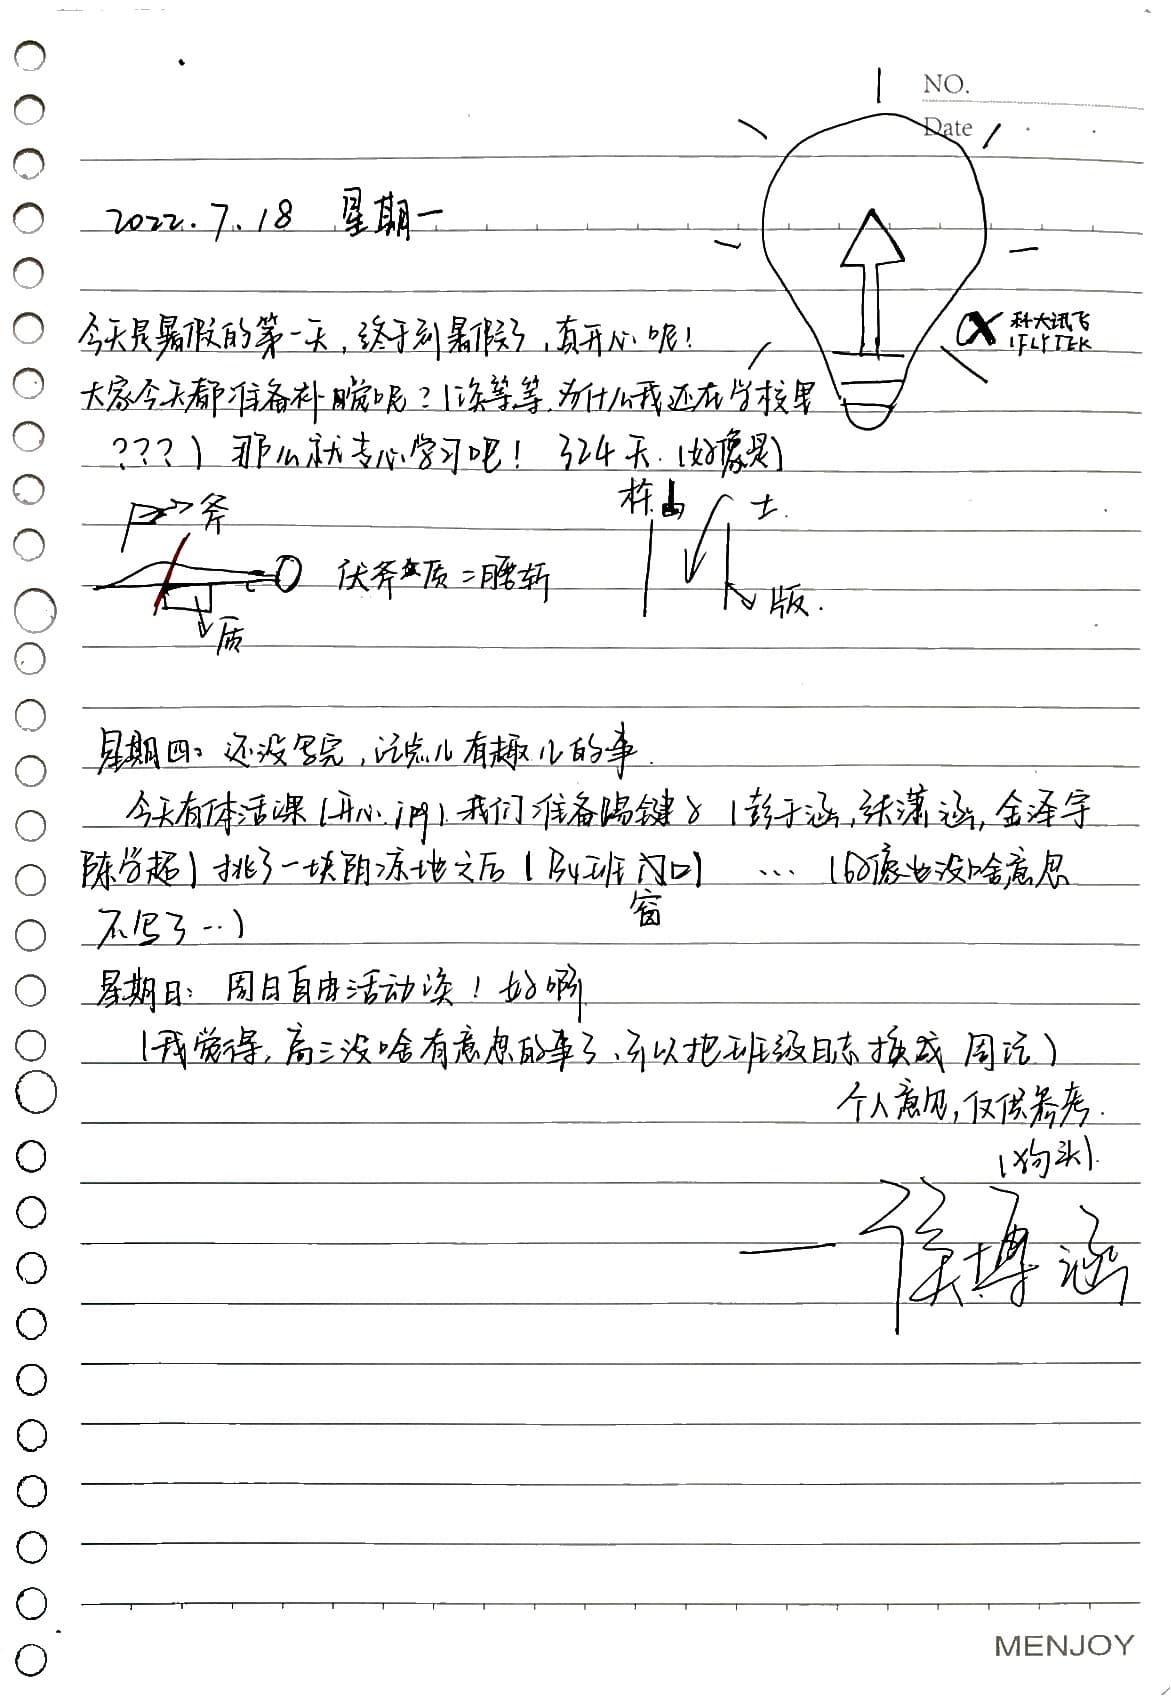 NO.
Date
2022.7.18 星期一
科大讯飞
IFLYTEK
今天是暑假的第一天,终于到暑假了,真开心呢!
大家今天都准备补觉呢?(诶等等,为什么我还在学校里
???) 那么就专心学习吧! 324天.(好像是)
斧
质
伏斧质=腰斩
土.
版.
星期四: 还没写完,记点儿有趣儿的事.
今天有体活课(开心.jpg).我们准备踢毽子(彭于涵,张潇涵,金泽宇
陈学超)挑了一块阴凉地之后(B4班门口) … (好像也没啥意思
窗
不写了…)
星期日: 周日自由活动诶!好啊
(我觉得,高三没啥有意思的事了,可以把班级日志换成 周记)
个人意见,仅供参考.
(狗头).
—侯博涵
MENJOY